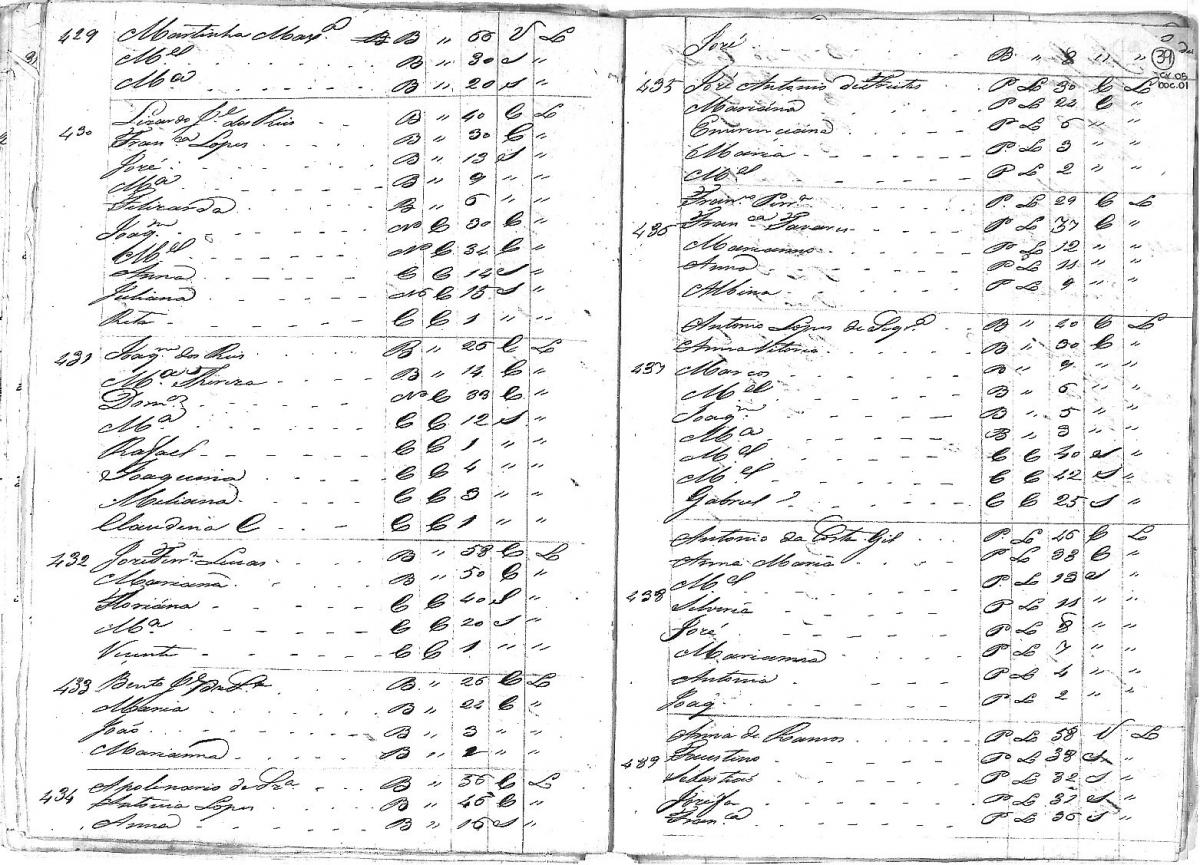 429 Martinha Mar.ª B B " 66 V L
M.el B " 30 S "
M.ª B " 20 S "
430 Lizardo J.e dos Reis B " 40 C L
Fran.ca Lopes B " 30 C "
José B " 13 S "
M.ª B " 9 " "
Felizarda B " 6 " "
Joaq.m N C 30 C "
M.el N C 34 C "
Anna C C 14 S "
Juliana N C 15 S "
Rita C C 1 " "
431 Joaq.m dos Reis B " 26 C L
M.ª Thereza B " 14 C "
Dom.os N C 39 C "
M.ª C C 12 S "
Rafael C C 1 " "
Joaquina C C 4 " "
Miliana C C 3 " "
Claudina C C C 1 " "
432 José Fer.r Lucas B " 58 C L
Marianna B " 50 C "
Floriana C C 40 S "
M.ª C C 20 S "
Vicente C C 1 " "
433 Bento J.e da S.ª B " 26 C L
Maria B " 22 C "
João B " 3 " "
Marianna B " 2 " "
434 Apolinario de Sz.ª B " 56 C L
Antonia Lopes B " 46 C "
Anna B " 16 S "
39
CX.05
DOC.01
José B " 8 " "
435 José Antonio de Freitas P L 30 C L
Marianna P L 22 C "
Emerenciana P L 6 " "
Maria P L 3 " "
M.el P L 2 " "
Fran.co Per.ª P L 29 C L
435 Fran.ca Tavares P L 37 C "
Marianno P L 12 " "
Anna P L 11 " "
Albina P L 9 " "
Antonio Lopes de Siq.ª B " 40 C L
Anna Vitoria B " 30 C "
437 Marcos B " 9 " "
M.el B " 6 " "
Joaq.m B " 5 " "
M.ª B " 3 " "
M.el C C 40 S "
M.el C C 42 S "
Gabriel C C 25 S "
Antonio da Costa Gil P L 46 C L
Anna Maria P L 38 C "
M.el P L 13 S "
438 Silveria P L 11 " "
José P L 8 " "
Marianna P L 7 " "
Antonia P L 4 " "
Joaq. P L 2 " "
Anna de Ramos P L 58 V L
439 Faustino P L 38 S "
Sebastião P L 32 S "
Josefa P L 37 S "
Fran.ca P L 36 S "